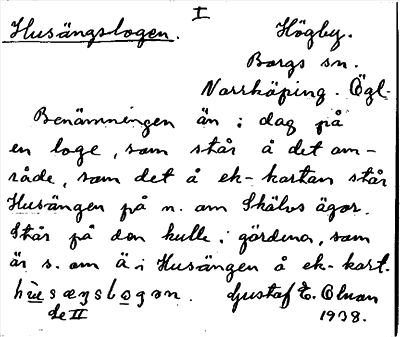 I
Husängslogen. Högby.
Borgs sn.
Norrköping. Ögl.
Benämningen än i dag på
en loge, som står å det om-
råde, som det å ek-kartan står
Husängen på n. om Skälvs ägor.
Står på den kulle i gärdena, som
är s. om ä i Husängen å ek-kart.
hùsæŋslogən. Gustaf E. Olson
de II 1938.